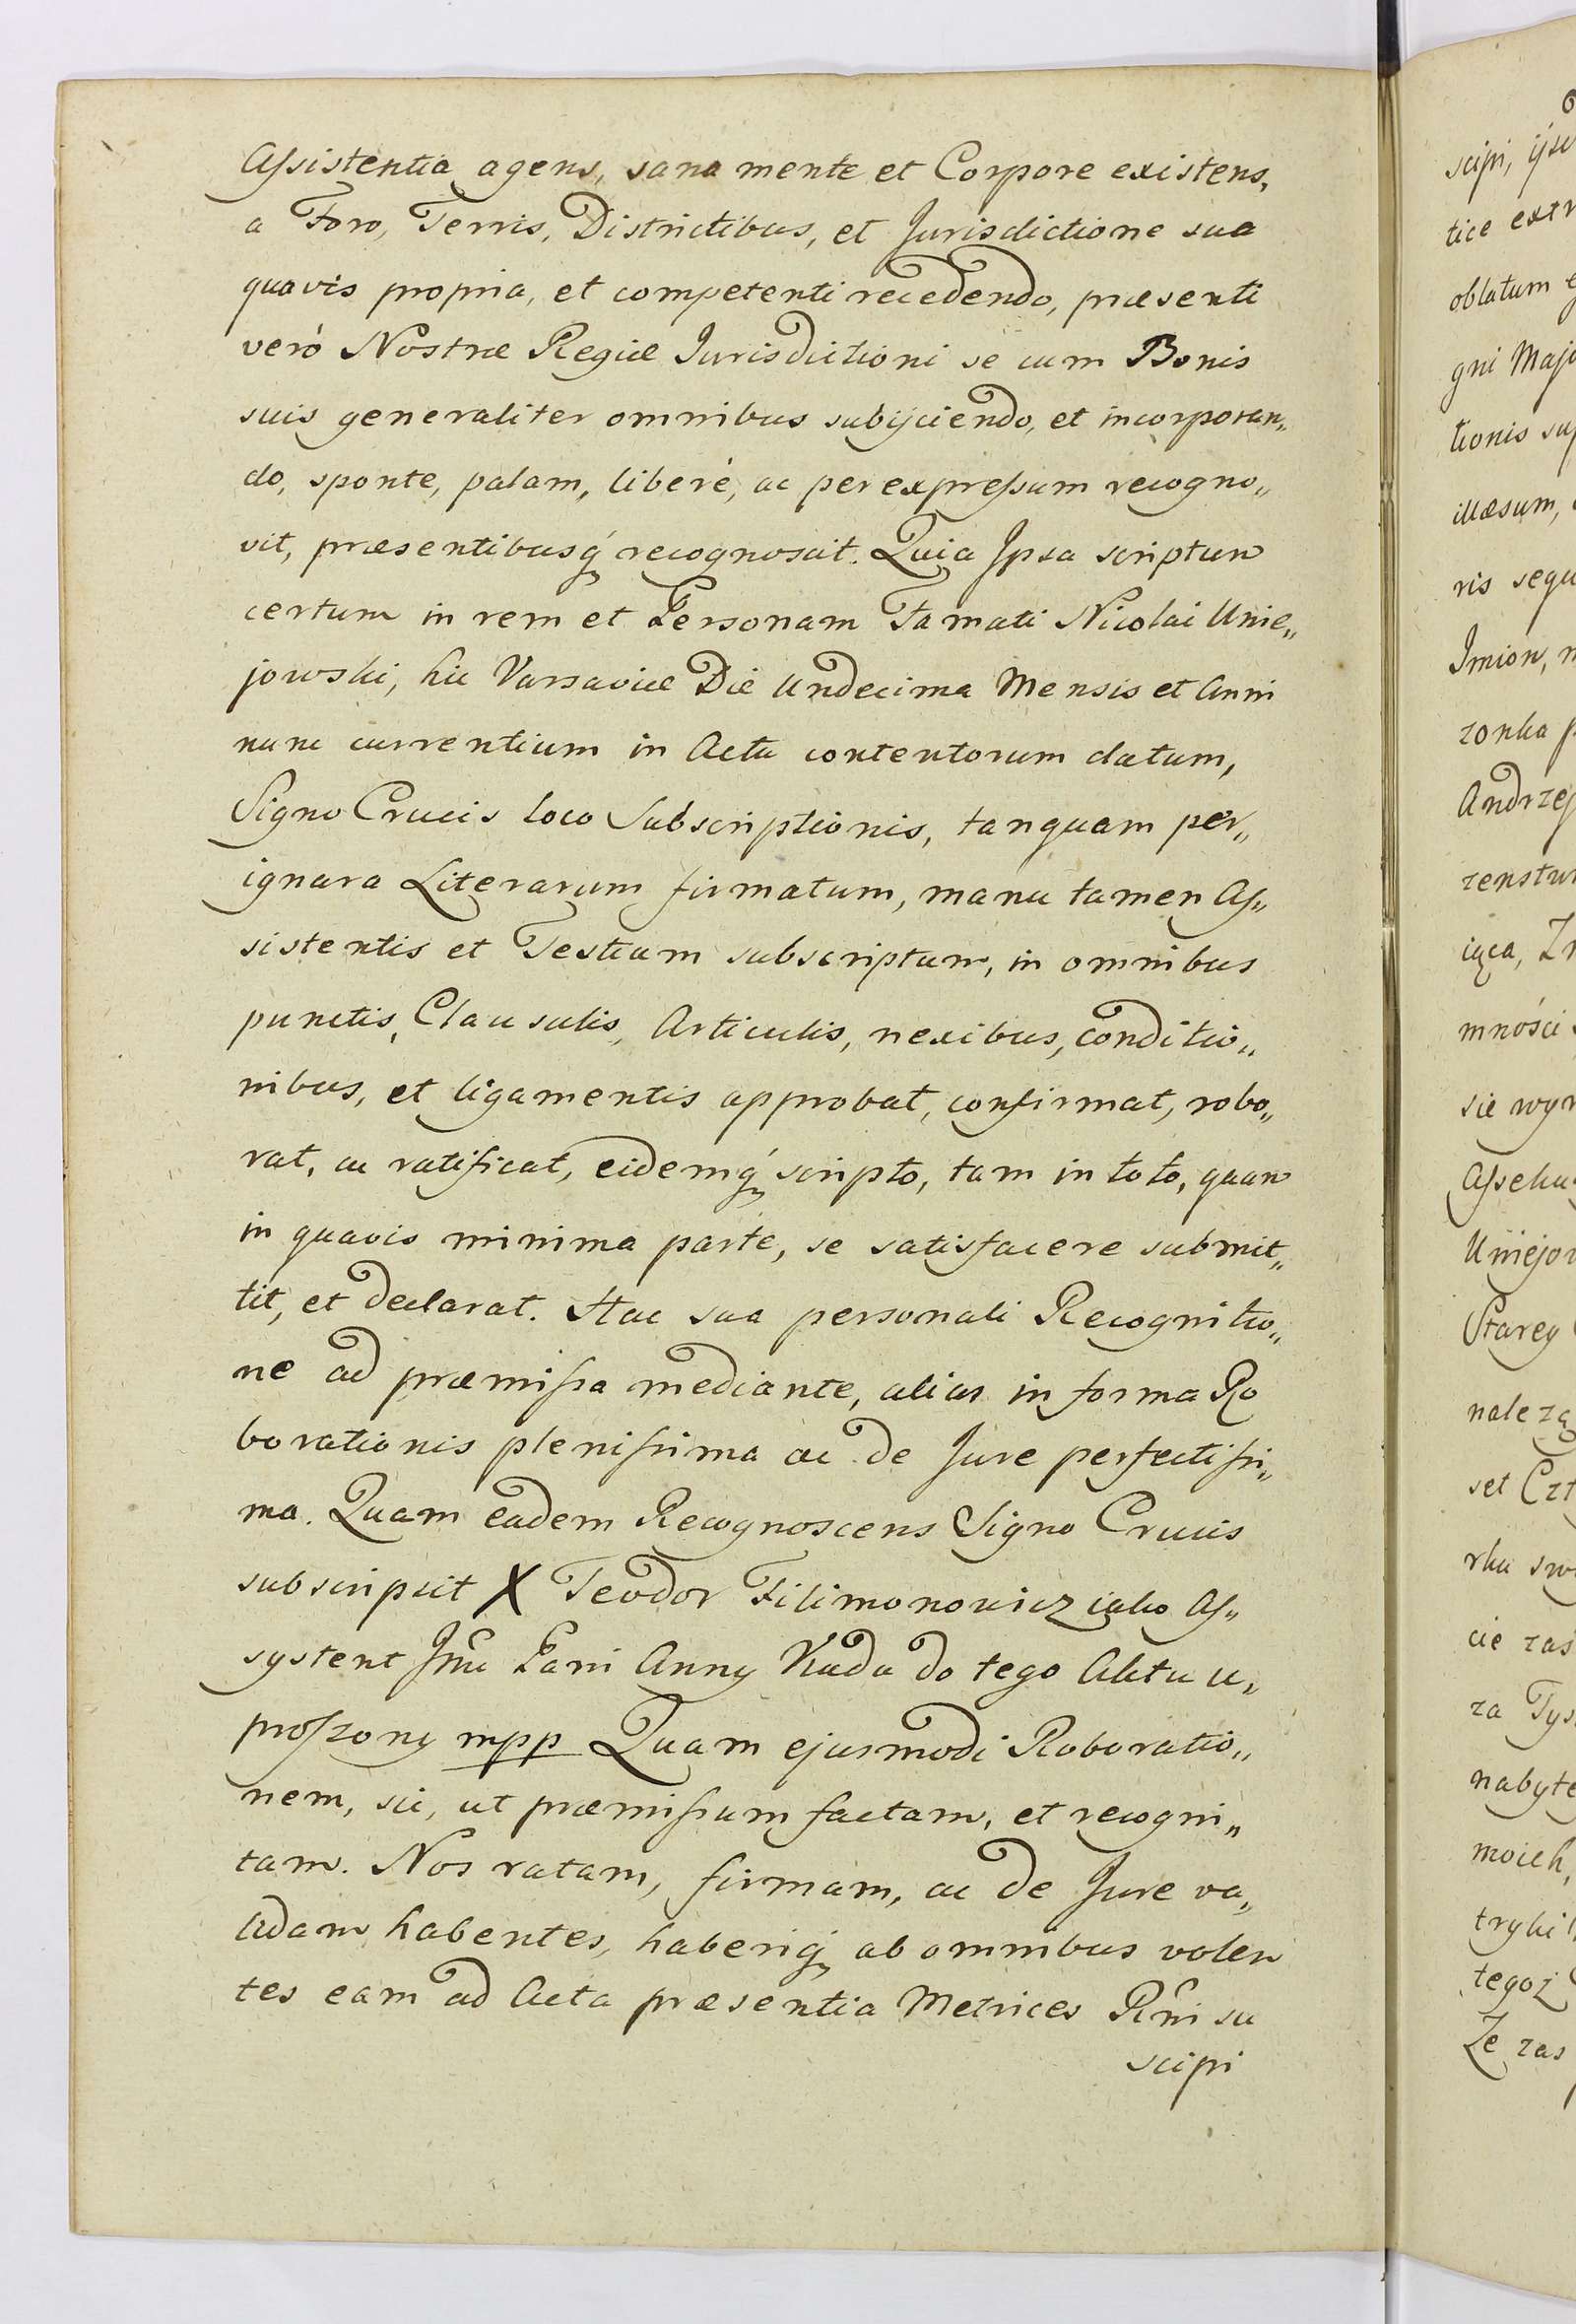 Aſsistentia agens, sana mente et Corpore existens,
a Foro, Terris, Districtibus, et Jurisdictione sua
quavis propria, et competenti recedendo, præsenti
verò Nostræ Regiæ Jurisdictioni se cum Bonis
suis generaliter omnibus subijciendo, et incorporan„
do, sponte, palam, liberè, ac per expreſsum recogno„
vit, præsentibusq́ recognoscit. Quia Ipsa scriptum
certum in rem et Personam Famati Nicolai Unie„
jowski, hic Varsaviæ Die Undecima Mensis et Anni
nunc currentium in Actu contentorum datum,
Signo Crucis loco Subscriptionis, tanquam per„
ignara Literarum firmatum, manu tamen Aſ„
sistentis et Testium subscriptum, in omnibus
punctis, Clausulis, Articulis, nexibus, conditio„
nibus, et ligamentis approbat, confirmat, robo„
rat, ac ratificat, eidemq́ scripto, tam in toto, quam
in quavis minima parte, se satisfacere submit„
tit, et declarat. Hac sua personali Recognitio„
ne ad præmiſsa mediante, alias in forma Ro
borationis pleniſsima ac de Jure perfectiſsi„
ma. Quam eadem Recognoscens Signo Crucis
subscripsit X Teodor Filimonowicz iako Aſ„
systent Jmć Pani Anny Kuda do tego Aktu u„
proſzony mpp Quam ejusmodi Roboratio„
nem, sic, ut præmiſsum factam, et recogni„
tam. Nos ratam, firmam, ac de Jure va„
lidam habentes, haberiq́ ab omnibus volen
tes eam ad Acta præsentia Metrices Rñi su
scipi
scipi,
tice
oblatum
gni
tionis
illæsum,
ris
Imion,
zonka
ciąca,
mności
sie
Starey
set
rku
cie zas
za
moich,
tegoż
Ze zas